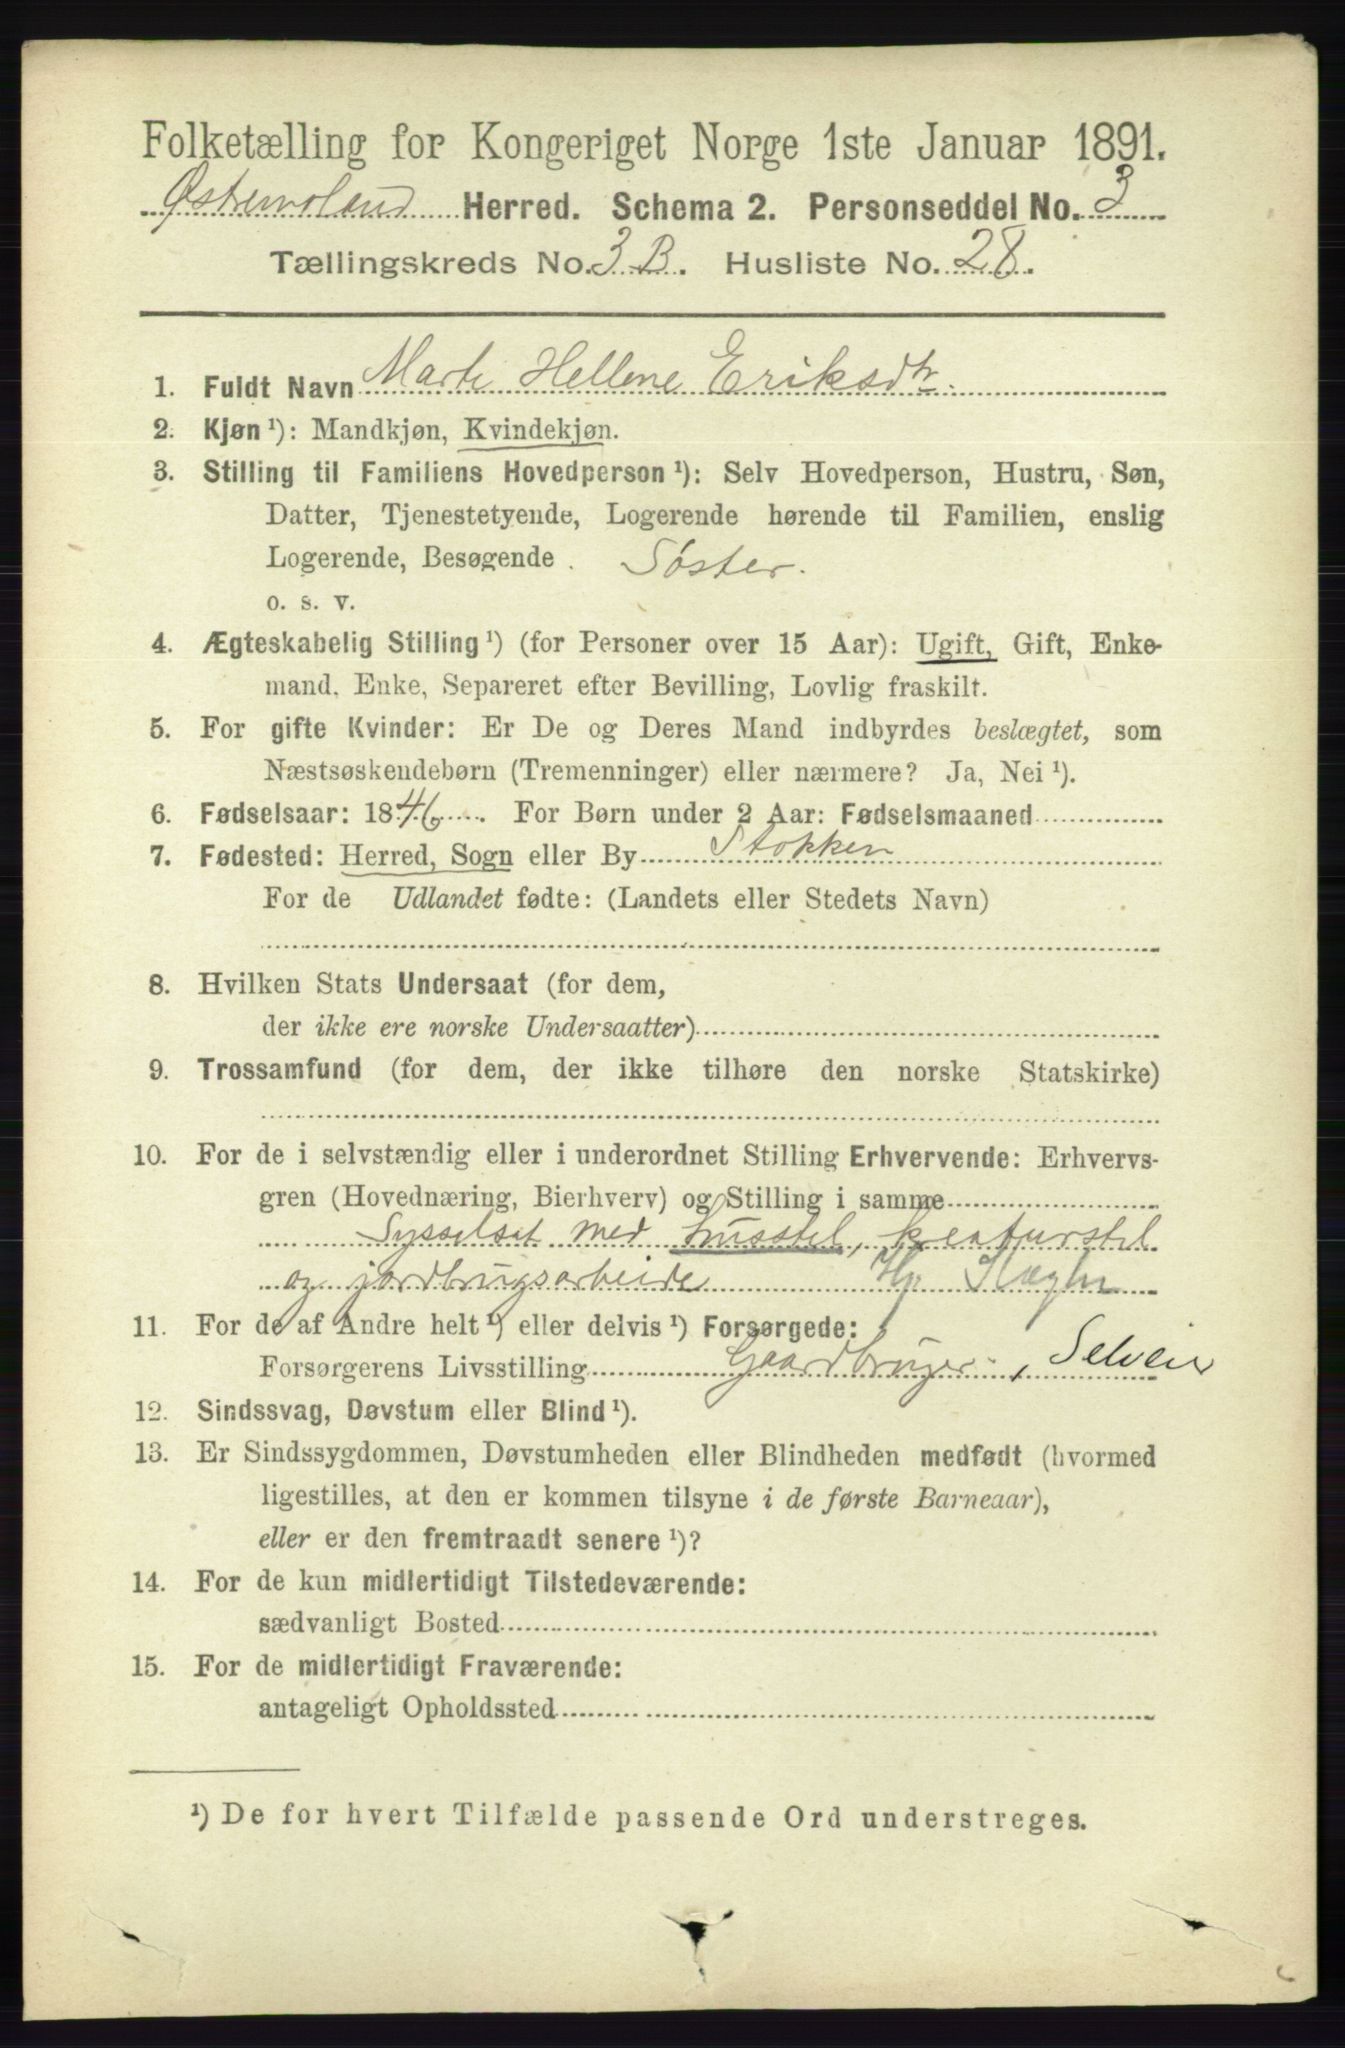 Folketælling for Kongeriget Norge 1ste Januar 1891.
Østermoland Herred. Schema 2. Personseddel No. 3
Tællingskreds No. 3 B. Husliste No. 28.
1. Fuldt Navn Marte Hellene Eriksdtr.
2. Kjøn ¹): Mandkjøn, Kvindekjøn.
3. Stilling til Familiens Hovedperson ¹): Selv Hovedperson, Hustru, Søn,
Datter, Tjenestetyende, Logerende hørende til Familien, enslig
Logerende, Besøgende . Søster.
o. s. v.
4. Ægteskabelig Stilling ¹) (for Personer over 15 Aar): Ugift, Gift, Enke-
mand, Enke, Separeret efter Bevilling, Lovlig fraskilt.
5. For gifte Kvinder: Er De og Deres Mand indbyrdes beslægtet, som
Næstsøskendebørn (Tremenninger) eller nærmere? Ja, Nei ¹).
6. Fødselsaar: 1846. For Børn under 2 Aar: Fødselsmaaned
7. Fødested: Herred, Sogn eller By Stokken
For de Udlandet fødte: (Landets eller Stedets Navn)
8. Hvilken Stats Undersaat (for dem,
der ikke ere norske Undersaatter)
9. Trossamfund (for dem, der ikke tilhøre den norske Statskirke)
10. For de i selvstændig eller i underordnet Stilling Erhvervende: Erhvervs-
gren (Hovednæring, Bierhverv) og Stilling i samme
Sysselsat med husstel, kreaturstel
og jordbrugsarbeide
11. For de af Andre helt ¹) eller delvis ¹) Forsørgede:
Forsørgerens Livsstilling Gaardbruger, Selveier
12. Sindssvag, Døvstum eller Blind ¹).
13. Er Sindssygdommen, Døvstumheden eller Blindheden medfødt (hvormed
ligestilles, at den er kommen tilsyne i de første Barneaar),
eller er den fremtraadt senere ¹)?
14. For de kun midlertidigt Tilstedeværende:
sædvanligt Bosted
15. For de midlertidigt Fraværende:
antageligt Opholdssted
¹) De for hvert Tilfælde passende Ord understreges.